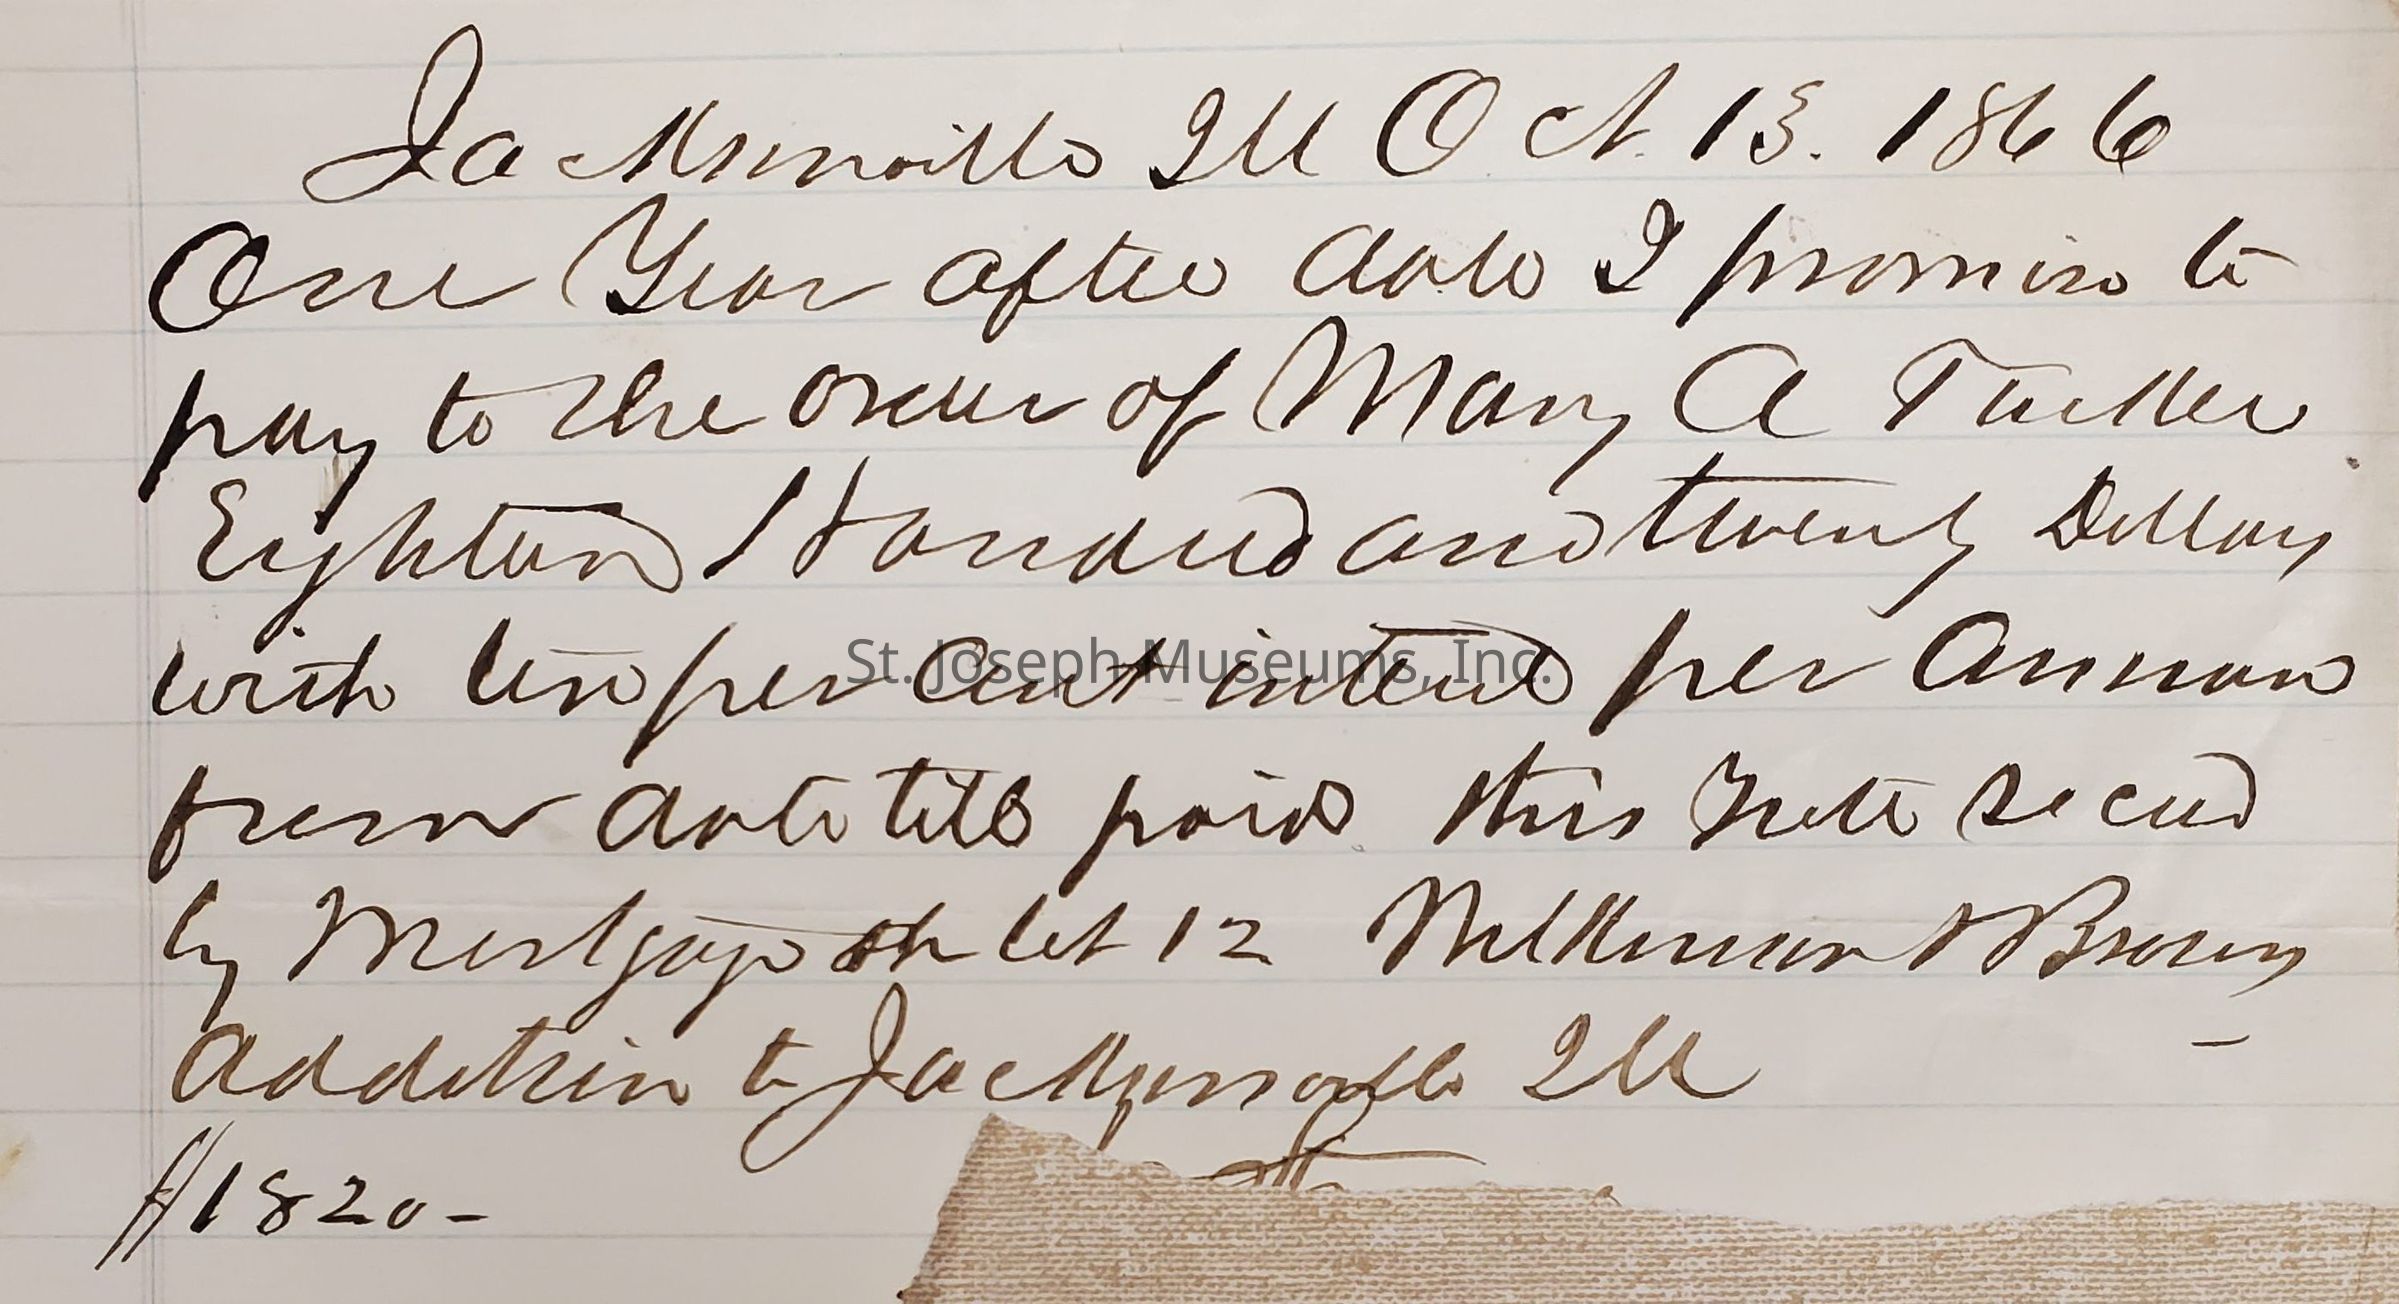 Jacksonville Ill Oct. 13. 1866
One Year after date I promise to
pay to the order of Mary A Tucker
Eighteen Hundred and twenty Dollars
with ten per Cent interest per Annum
from date till paid this Note secured
by Mortgage on lot 12 & Browns
Addition to Jacksonville Ill
$1820-
St. Joseph Museums, Inc.